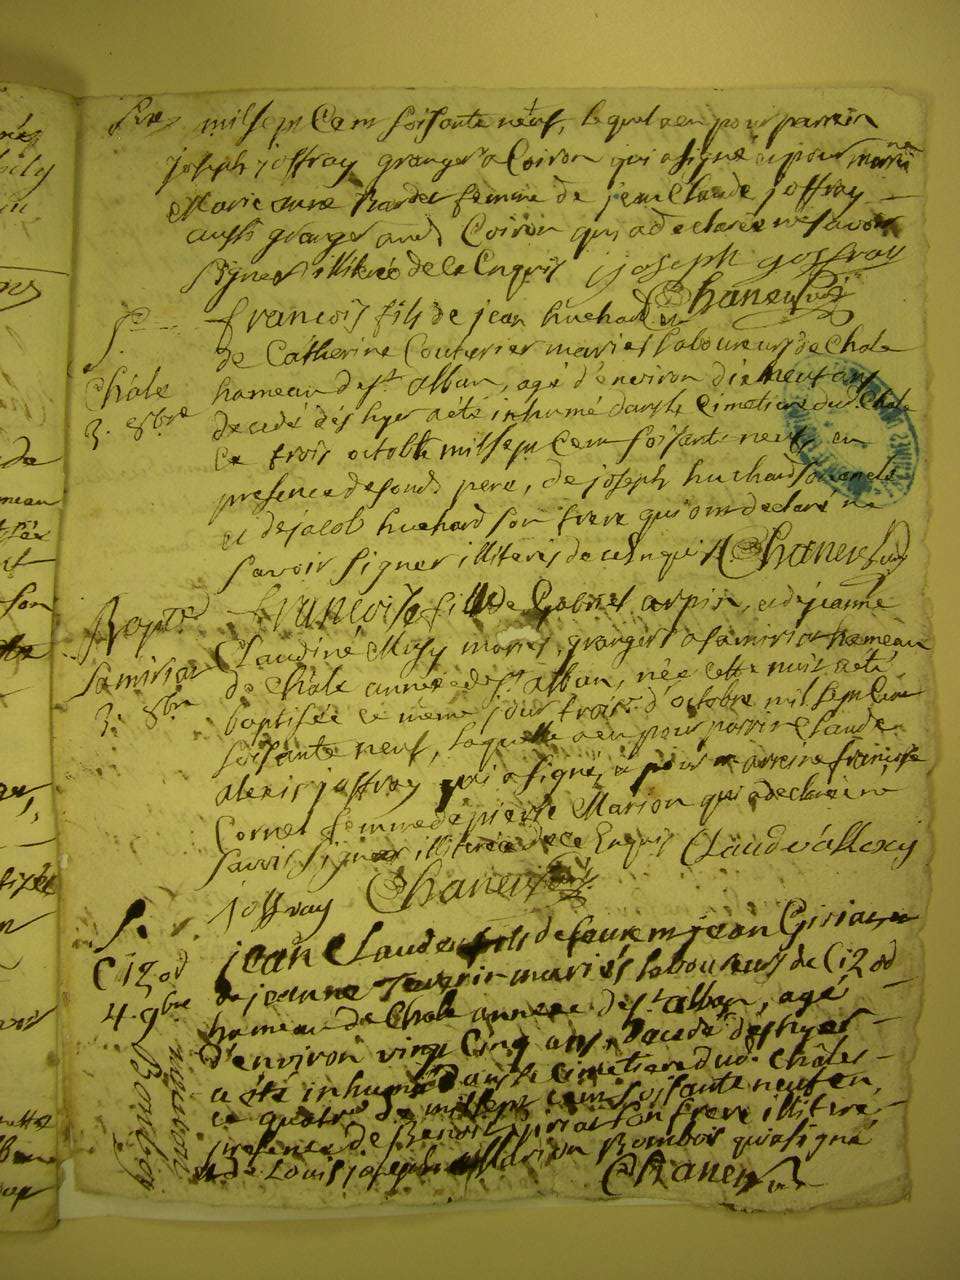 mil sept Cent soisante neuf, lequel a eu pour parrein
joseph joffray granger a Coiron qui a signé et pour marreine
Marie femme de jean Claude joffray
aussi granger aud. Coiron qui a declarée ne savoir
signer illiterée de ce Enquis joseph joffray
Chaney
S.re francois fils de jean huchard et
de Catherine Couturier mariés laboureurs de Chale
Chale hameau de St alban, agé d'environ dix neuf ans
3. 8bre decedé dès hyer a été inhumé dans le cimetiere dud. Chale
ce trois octobre mil sept Cent soisante neuf, en
presence de sond. pere, de joseph huchard son oncle
et de jacob huchard son frere qui ont declaré ne
savoir signer illiterés de ce Enquis Chaney
Bapte francoise fille de Gabriel arpin, et de jeanne
Claudine Musy mariés, grangers a Samiriat hameau
Samiriat de Châle annexe de St alban, née cette nuit a été
3. 8bre baptisée ce même jour trois d'octobre mil sept Cent
soisante neuf, laquelle a eu pour parrein Claude
alexis joffray qui a signé, et pour marreine francoise
Cornet femme de pierre Marion qui a declaré ne
savoir signer illiterée de ce Enquis Claude Allexy
joffray Chaney
S. jean Claude fils de feu jean Giriat et
Cizod de jeanne mariés laboureurs de Cizod
4. 9bre hameau de Chale annexe de St alban, agé
d'environ vingt Cinq ans, decedé dès hyer
a été inhumé dans le cimetiere dud. Châles
ce quatre de mil sept cent soisante neuf en
presence de Benoit giriat son frere illiteré
et de Louis joseph Marion Bombois qui a signé
Chaney